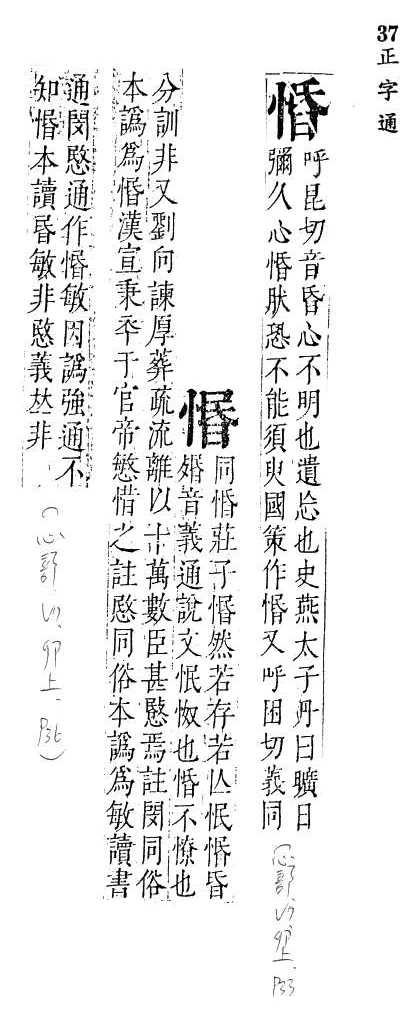 37正字通
惛
呼昆切音昏心不明也遺忘也史燕太子丹曰曠日
彌久心惛肰恐不能須臾國策作惽又呼困切義同
心部 卯上 P33
惽
同惛莊子惽然若存若亾怋惽昏
婚音義通說文怋怓也惛不憭也
分訓非又劉向諫厚葬疏流離以十萬數臣甚愍焉註閔同俗
本譌為惛漢宣秉卒于官帝愍惜之註愍同俗本譌為敏讀書
通閔愍通作惽敏因譌強通不
知惽本讀昬敏非愍義𠀤非
(心部 卯上 P36)